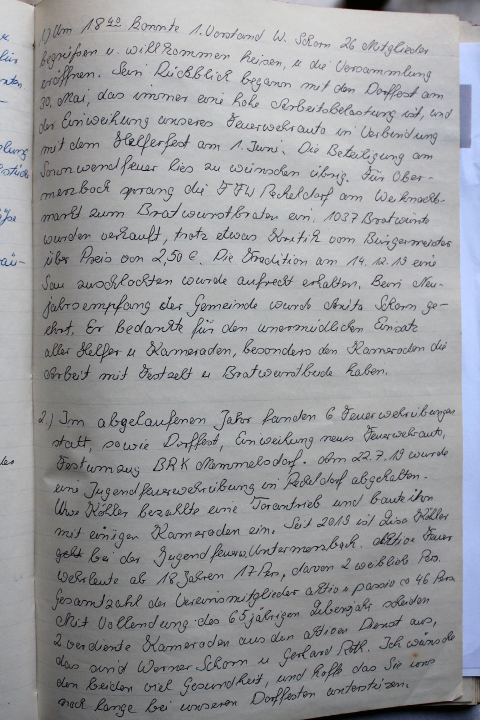 1) Um 18⁴⁰ konnte 1. Vorstand W. Schorn 26 Mitglieder
begrüßen u. willkommen heisen, u die Versammlung
eröffnen. Sein Rückblick begann mit den Dorffest am
30. Mai, das immer eine hohe Arbeitsbelastung ist, und
der Einweihung unseres Feuerwehrauto in Verbindung
mit dem Helferfest am 1. Juni. Die Beteiligung am
Sonnwendfeuer lies zu wünschen übrig. Für Ober-
merzbach sprang die FFW Recheldorf am Weihnachts-
markt zum Bratwurstbraten ein. 1037 Bratwürste
wurden verkauft, trotz etwas Kritik vom Bürgermeister
über Preis von 2,50 €. Die Tradition am 14.12.19 eine
Sau zuschlachten wurde aufrecht erhalten. Beim Neu-
jahrsempfang der Gemeinde wurde Anita Schorn ge-
ehrt. Er bedankte für den unermüdlichen Einsatz
aller Helfer u Kameraden, besonders den Kameraden die
Arbeit mit Festzelt u Bratwurstbude haben.
2.) Im abgelaufenen Jahr fanden 6 Feuerwehrübungen
statt, sowie Dorffest, Einweihung neues Feuerwehrauto,
Festumzug BRK Memmelsdorf. Am 22.7.19 wurde
eine Jugendfeuerwehrübung in Recheldorf abgehalten.
Uwe Köhler bezahlte eine Torantrieb und baute ihn
mit einigen Kameraden ein. Seit 2019 ist Lisa Köhler
geht bei der Jugendfeuerw. Untermerzbach. Aktive Feuer
wehrleute ab 18 Jahren 17 Per, davon 2 weiblich Per.
Gesamtzahl der Vereinsmitglieder aktiv u passiv ca 46 Pers
Mit Vollendung des 65 jährigen Lebensjahr scheiden
2 verdiente Kameraden aus den aktiven Dienst aus,
das sind Werner Schorn u Gerhard Roth. Ich wünsche
den beiden viel Gesundheit, und hoffe das Sie uns
noch lange bei unseren Dorffesten unterstüzen.